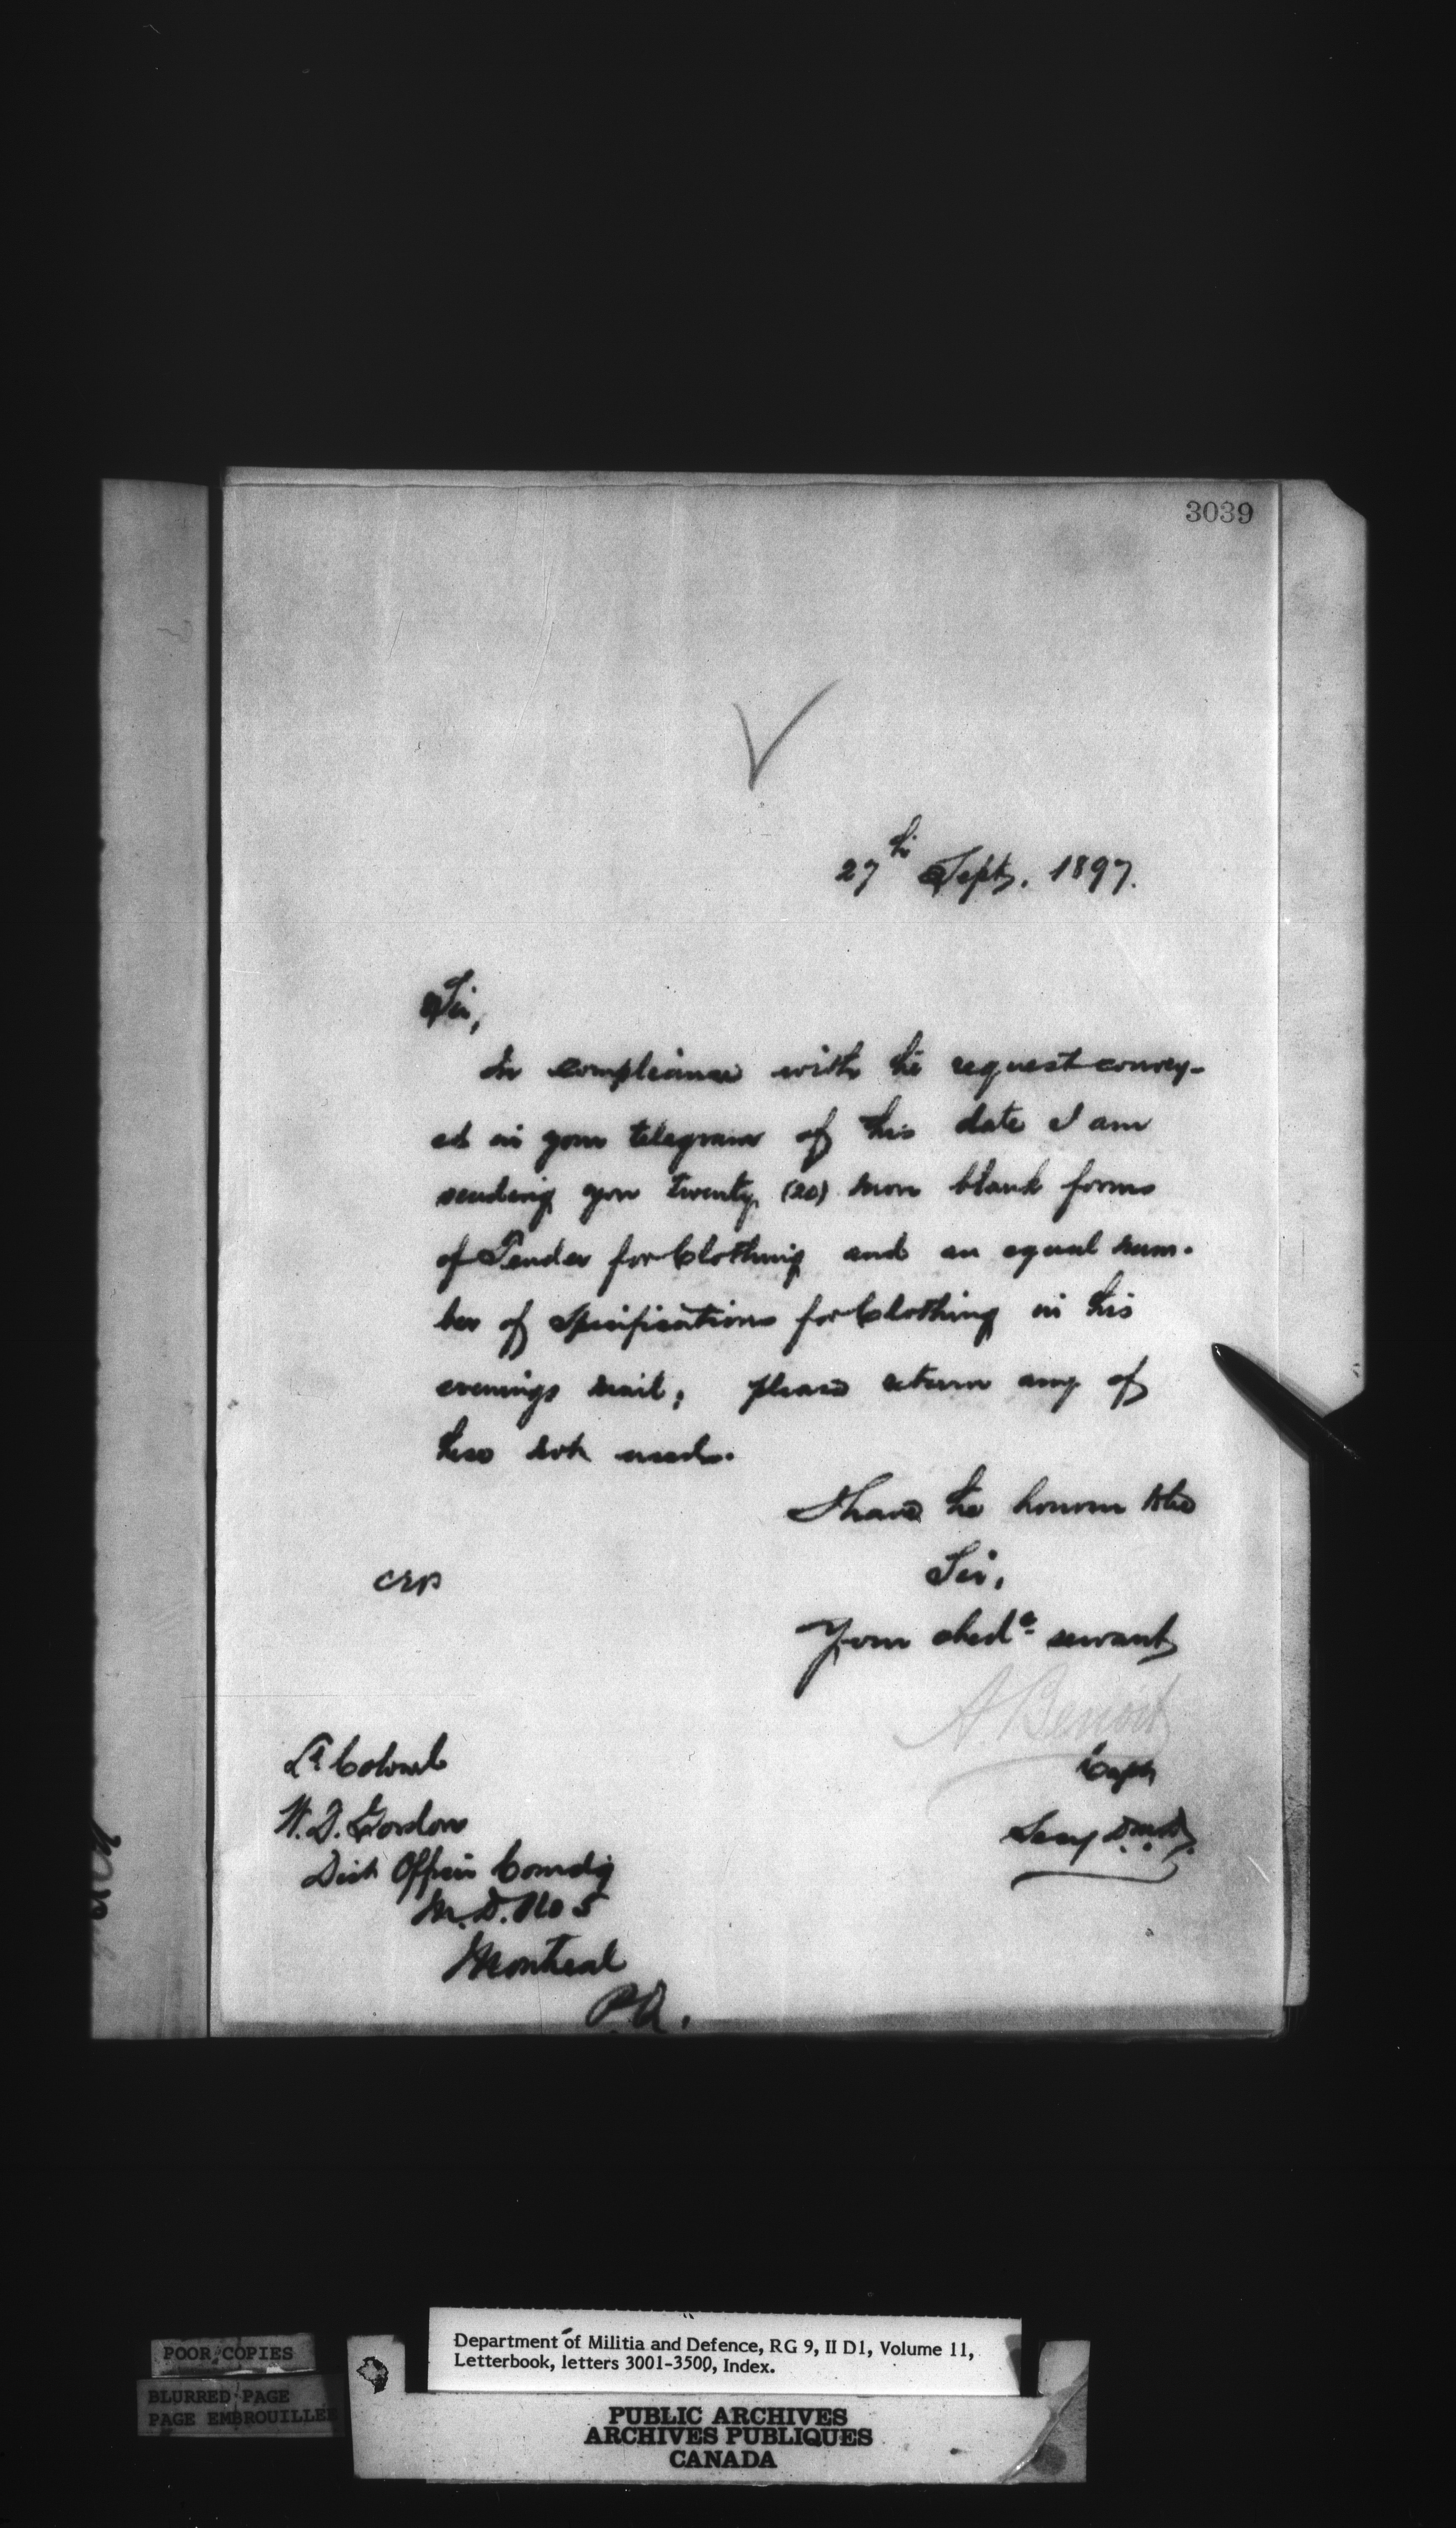 3039
27th Sept. 1897.
Sir,
In compliance with the request convey-
ed in your telegram of this date I am
sending you twenty (20) more blank forms
of Tender for Clothing and an equal num-
ber of Specifications for Clothing in this
evenings mail; please return any of
these not used.
I have the honour to be
Sir,
Your obedt. servant
A. Benoit
Capt
Secy D.M.D.
Lt Colonel
W. D. Gordon
Dist Officer Comdg
M. D. No 5
Montreal
P.Q.
POOR COPIES
BLURRED PAGE
PAGE EMBROUILLEE
Department of Militia and Defence, RG 9, II D1, Volume 11,
Letterbook, letters 3001-3500, Index.
PUBLIC ARCHIVES
ARCHIVES PUBLIQUES
CANADA